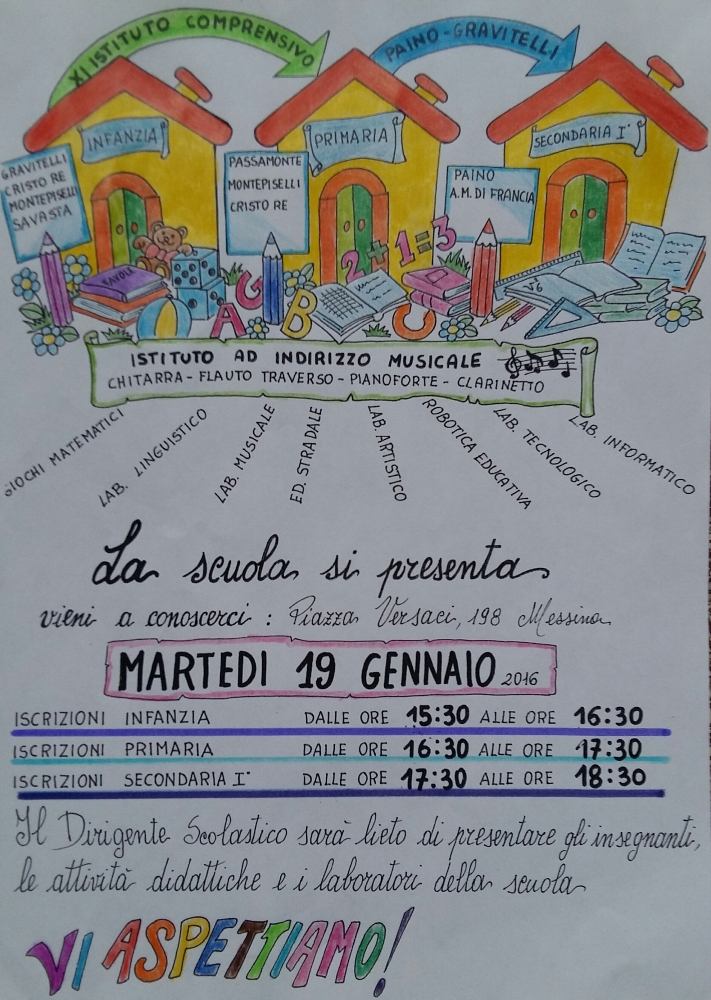 XI ISTITUTO COMPRENSIVO
PAINO-GRAVITELLI
INFANZIA
PRIMARIA
SECONDARIA I°
GRAVITELLI
CRISTO RE
MONTEPISELLI
SAVASTA
PASSAMONTE
MONTEPISELLI
CRISTO RE
PAINO
A.M. DI FRANCIA
TAVOLE
2+1=3
√6
A G B C
ISTITUTO AD INDIRIZZO MUSICALE
CHITARRA - FLAUTO TRAVERSO - PIANOFORTE - CLARINETTO
GIOCHI MATEMATICI
LAB. LINGUISTICO
LAB. MUSICALE
ED. STRADALE
LAB. ARTISTICO
ROBOTICA EDUCATIVA
LAB. TECNOLOGICO
LAB. INFORMATICO
La scuola si presenta
vieni a conoscerci : Piazza Versaci, 198 Messina
MARTEDI 19 GENNAIO 2016
ISCRIZIONI INFANZIA DALLE ORE 15:30 ALLE ORE 16:30
ISCRIZIONI PRIMARIA DALLE ORE 16:30 ALLE ORE 17:30
ISCRIZIONI SECONDARIA I° DALLE ORE 17:30 ALLE ORE 18:30
Il Dirigente Scolastico sarà lieto di presentare gli insegnanti,
le attività didattiche e i laboratori della scuola
VI ASPETTIAMO!